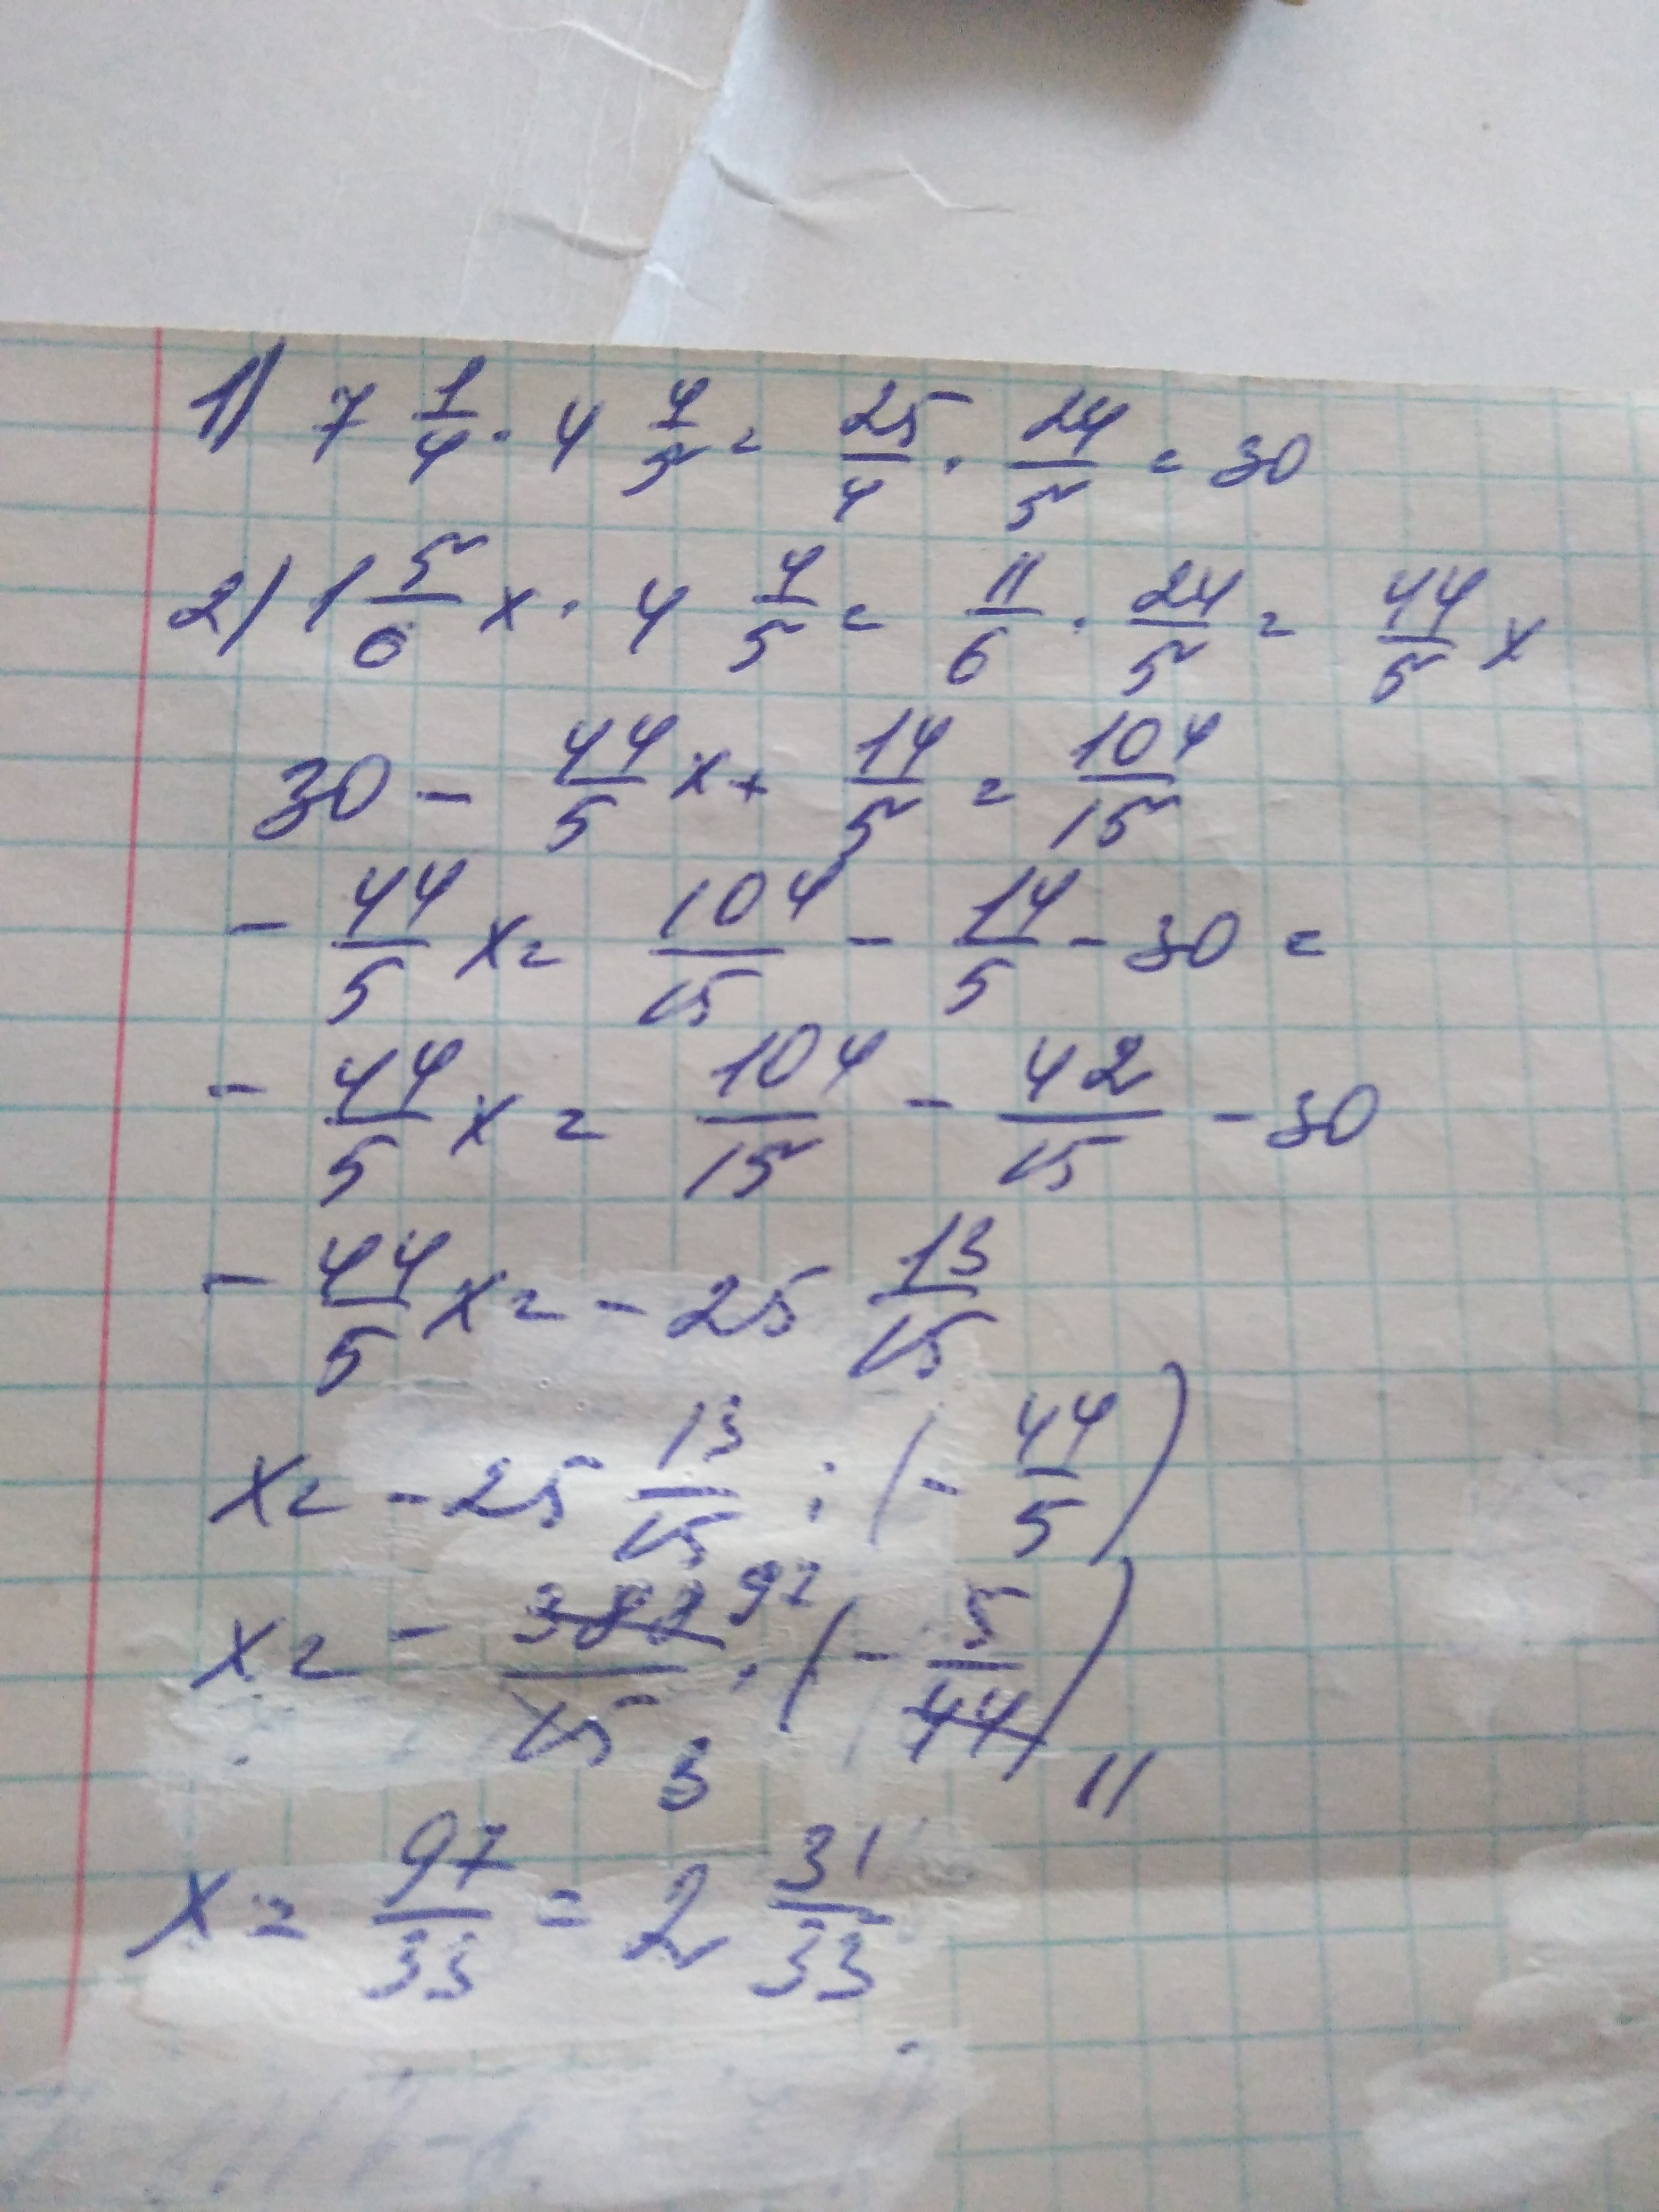 1) 7 1/4 · 4 4/5 = 25/4 · 24/5 = 30
2) 1 5/6 x · 4 4/5 = 11/6 · 24/5 = 44/5 x
30 - 44/5 x + 14/5 = 104/15
- 44/5 x = 104/15 - 14/5 - 30 =
- 44/5 x = 104/15 - 42/15 - 30
- 44/5 x = - 25 13/15
x = - 25 13/15 : (- 44/5)
x = - 388 97/15 3 · (- 5/44) 11
x = 97/33 = 2 31/33